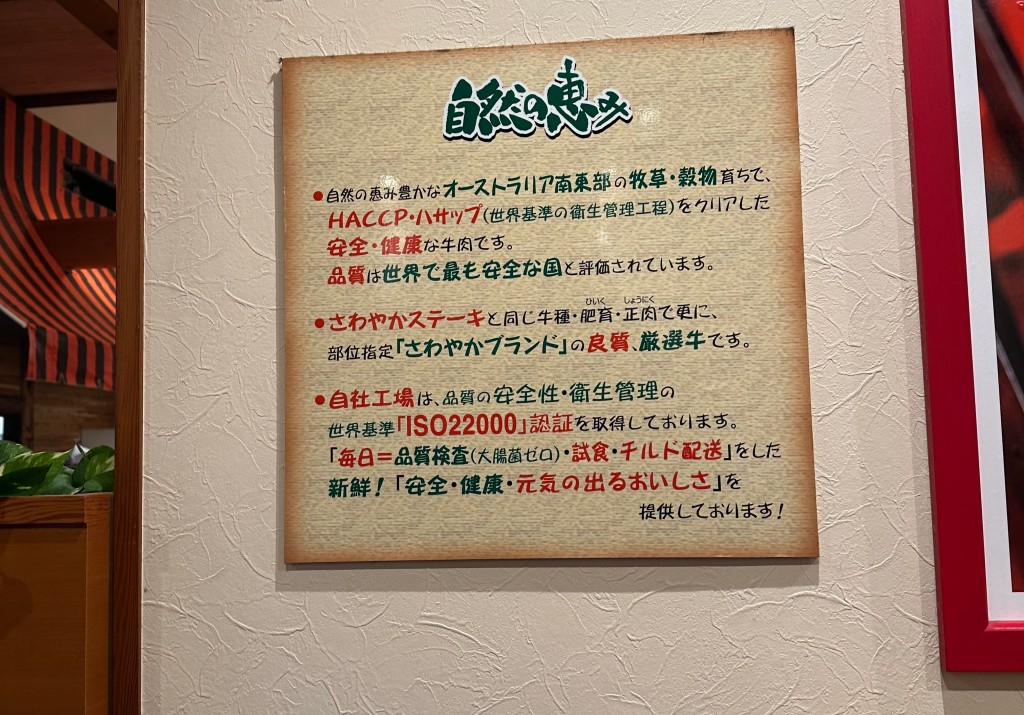 自然の恵み
●自然の恵み豊かなオーストラリア南東部の牧草・穀物育ちで、
HACCP・ハサップ(世界基準の衛生管理工程)をクリアした
安全・健康な牛肉です。
品質は世界で最も安全な国と評価されています。
ひいく しょうにく
●さわやかステーキと同じ牛種・肥育・正肉で更に、
部位指定「さわやかブランド」の良質、厳選牛です。
●自社工場は、品質の安全性・衛生管理の
世界基準「ISO22000」認証を取得しております。
「毎日=品質検査(大腸菌ゼロ)・試食・チルド配送」をした
新鮮!「安全・健康・元気の出るおいしさ」を
提供しております!